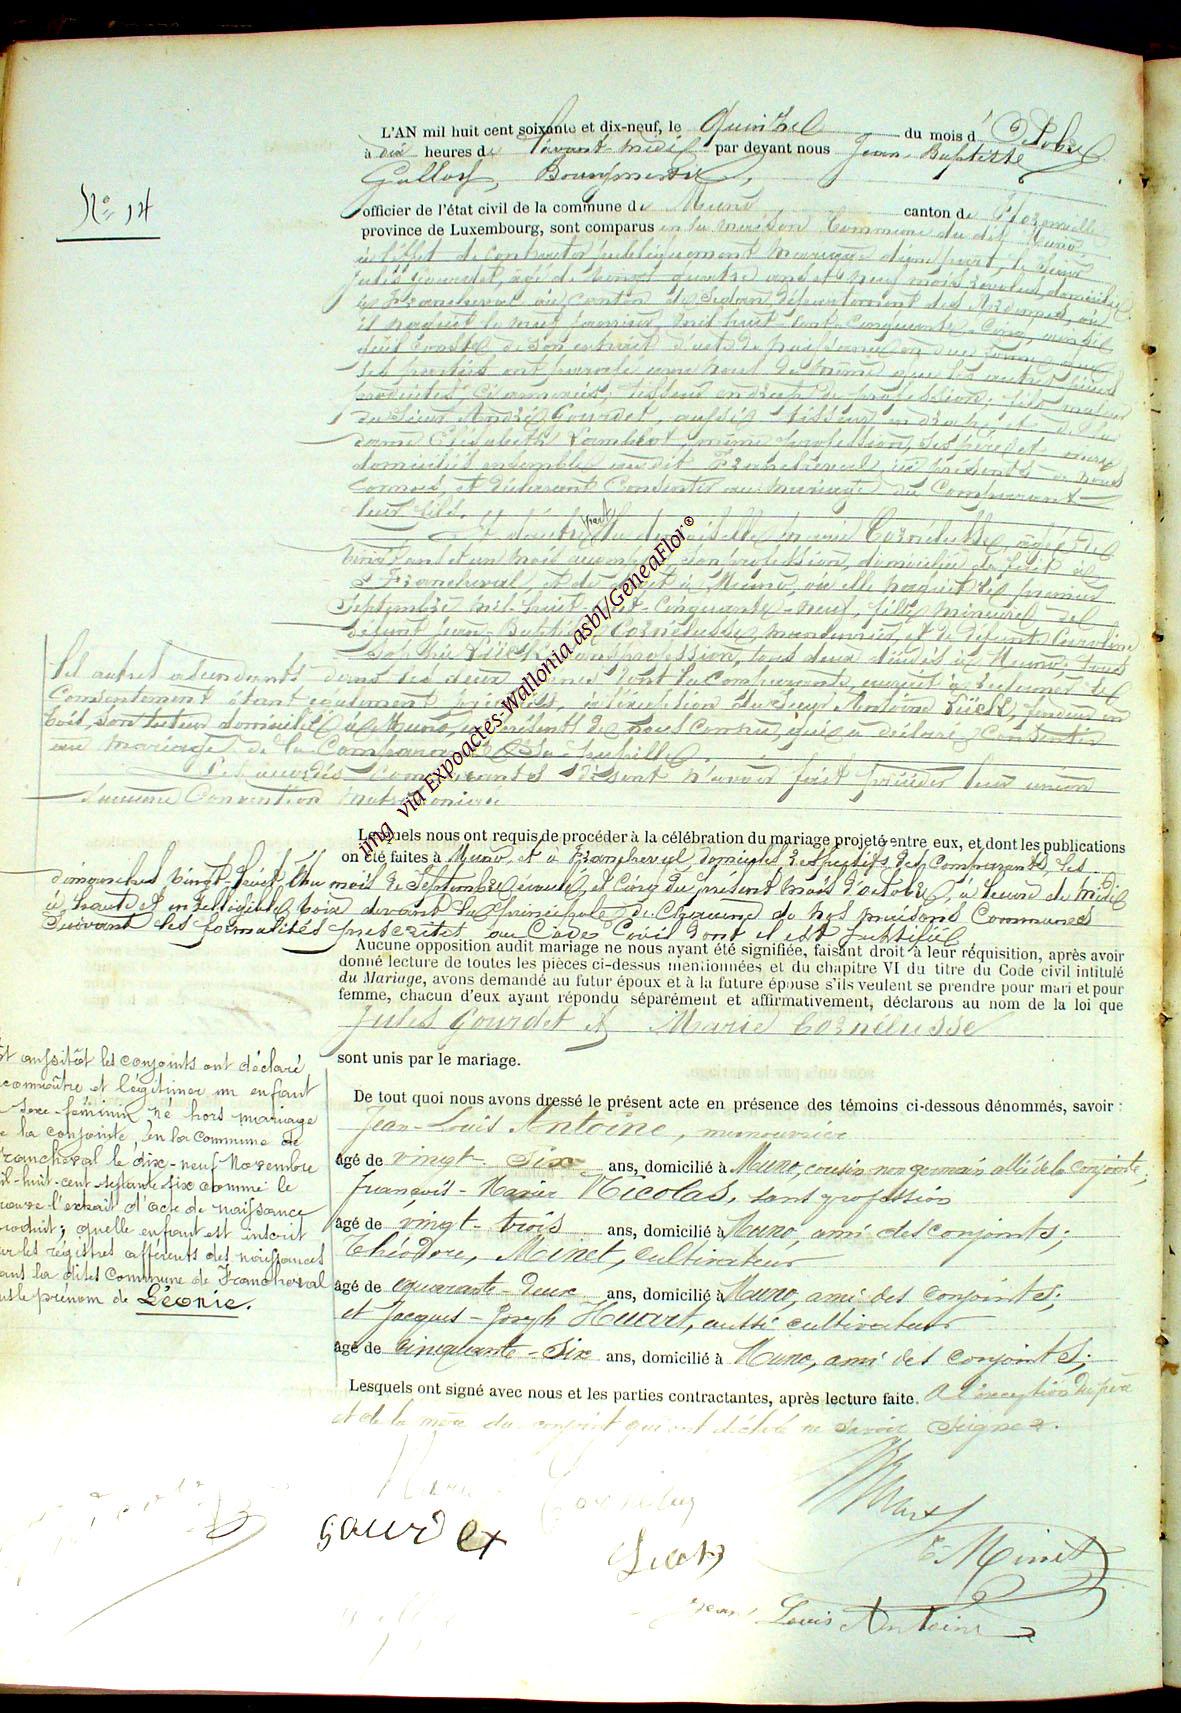 N° 14
L'AN mil huit cent soixante et dix-neuf, le Quinze du mois d'Octobre
à dix heures de l'avant-midi par devant nous Jean-Baptiste
Bourgmestre,
officier de l'état civil de la commune de Muno canton de Florenville
province de Luxembourg, sont comparus en la maison Commune du dit Muno
à l'effet de Contracter mariage d'une part, le Sieur
Jules Gourdet, âgé de vingt quatre ans et neuf mois révolus, domicilié
à Francheval au Canton de Sedan, département des Ardennes, où
il naquit le neuf janvier mil huit cent cinquante-cinq, ainsi
de son extrait d'acte de naissance
les parties ont de même que les autres pièces
produites tisseur en draps de profession, fils majeur
du Sieur André Gourdet, aussi tisseur en draps et de la
dame Elisabeth même profession, ses père et mère
domiciliés ensemble audit Francheval, ici présents à nous
connus et déclarant Consentir au mariage du Comparant
leur fils.
Et d'autre part la demoiselle Marie Cornélusse, âgée de
vingt ans et un mois profession, domiciliée de fait à
Francheval, et de droit à Muno, où elle naquit le premier
Septembre mil-huit-cent-Cinquante-neuf, fille mineure de
défunt Jean-Baptiste Cornélusse, manouvrier, et de défunte Caroline
Sophie sans profession, tous deux décédés à Muno; tous
les autres ascendants dans les deux lignes dont la Comparante aurait à réclamer le
Consentement étant également à l'exception du Sieur Antoine
son tuteur, domicilié à Muno, ici présent de nous Connu, qui a déclaré Consentir
au mariage de la Comparante Sa pupille.
Les susdits comparants disent n'avoir fait précéder leur union
d'aucune Convention matrimoniale
Lesquels nous ont requis de procéder à la célébration du mariage projeté entre eux, et dont les publications
on été faites à Muno, et à Francheval domiciles respectifs des Comparants, les
dimanches vingt-huit du mois de Septembre écoulé, et Cinq du présent mois d'octobre, à heure de midi
à haute et intelligible voix devant la principale de Chacune de nos maisons Communes
Suivant les formalités prescrites au Code Civil dont il est justifié
Aucune opposition audit mariage ne nous ayant été signifiée, faisant droit à leur réquisition, après avoir
donné lecture de toutes les pièces ci-dessus mentionnées et du chapitre VI du titre du Code civil intitulé
du Mariage, avons demandé au futur époux et à la future épouse s'ils veulent se prendre pour mari et pour
femme, chacun d'eux ayant répondu séparément et affirmativement, déclarons au nom de la loi que
Jules Gourdet et Marie Cornélusse
sont unis par le mariage.
Et aussitôt les conjoints ont déclaré
reconnoître et légitimer un enfant
sexe féminin né hors mariage
de la conjointe, en la Commune de
Francheval le dix-neuf Novembre
mil-huit-cent-septante six comme le
prouve l'extrait d'acte de naissance
produit; quelle enfant est inscrit
sur les régistres afférents des naissances
dans la dites Commune de Francheval
sous le prénom de Léonie.
De tout quoi nous avons dressé le présent acte en présence des témoins ci-dessous dénommés, savoir :
Jean-Louis Antoine, manouvrier
âgé de vingt-six ans, domicilié à Muno, cousin non germain allié de la conjointe;
françois-Xavier Nicolas, sans profession
âgé de vingt-trois ans, domicilié à Muno, ami des conjoints;
Théodore, Minet, cultivateur
âgé de quarante-deux ans, domicilié à Muno, ami des conjoints;
et Jacques-Joseph Huart, aussi cultivateur
âgé de cinquante-six ans, domicilié à Muno, ami des conjoints;
Lesquels ont signé avec nous et les parties contractantes, après lecture faite. A l'exception du père
et de la mère du conjoint qui ont déclaré ne savoir signer.
Gourdet
Huart
T. Minet
Jean Louis Antoine
img via Expoactes-Wallonia asbl/GeneaFlor®